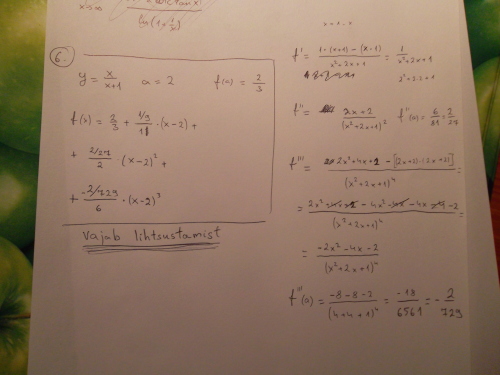 x→∞
lim(1+1/x)
x = 1 - x
6.
y = x/(x+1) a = 2 f(a) = 2/3
f(x) = 2/3 + (1/9)/1! · (x-2) +
+ (2/27)/2 · (x-2)² +
+ (-2/729)/6 · (x-2)³
Vajab lihtsustamist
f' = (1·(x+1) - (x·1))/(x²+2x+1) = 1/(x²+2x+1)
2²+2·2+1
f'' = (2x+2)/(x²+2x+1)² f''(a) = 6/81 = 2/27
f''' = (2x²+4x+2 - [(2x+2)·(2x+2)])/(x²+2x+1)⁴
= (2x²+4x+2 - 4x² - 4x - 4x - 4)/(x²+2x+1)⁴ =
= (-2x²-4x-2)/(x²+2x+1)⁴
f'''(a) = (-8-8-2)/(4+4+1)⁴ = -18/6561 = - 2/729